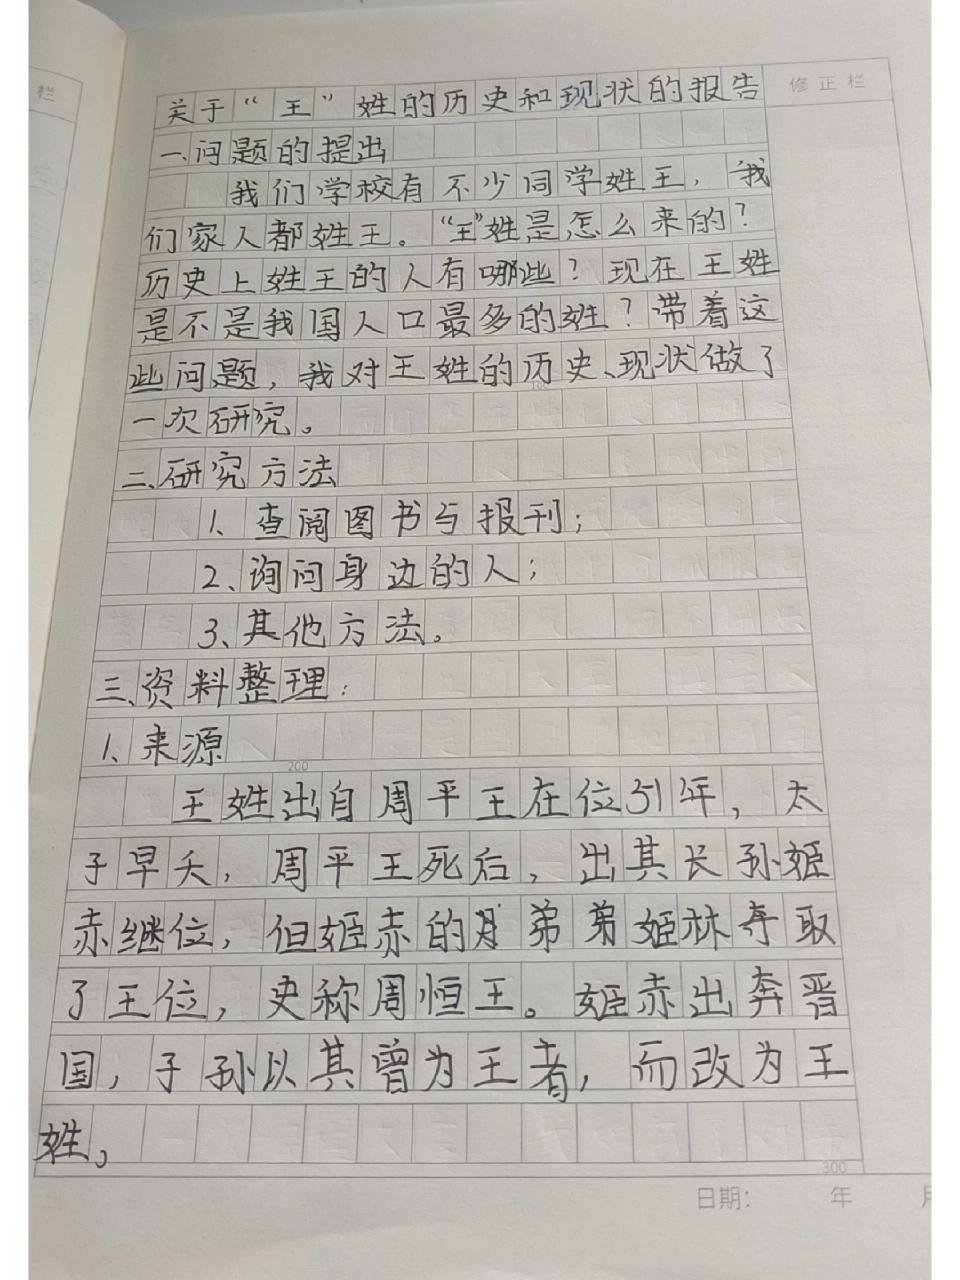 栏
修正栏
关于“王”姓的历史和现状的报告
一、问题的提出
我们学校有不少同学姓王，我
们家人都姓王。“王”姓是怎么来的？
历史上姓王的人有哪些？现在王姓
是不是我国人口最多的姓？带着这
些问题，我对王姓的历史、现状做了
一次研究。
二、研究方法
1、查阅图书与报刊；
2、询问身边的人；
3、其他方法。
三、资料整理：
1、来源
200
王姓出自周平王在位51年，太
子早夭，周平王死后，出其长孙姬
赤继位，但姬赤的弟弟姬林夺取
了王位，史称周恒王。姬赤出奔晋
国，子孙以其曾为王者，而改为王
姓。
300
日期： 年 月